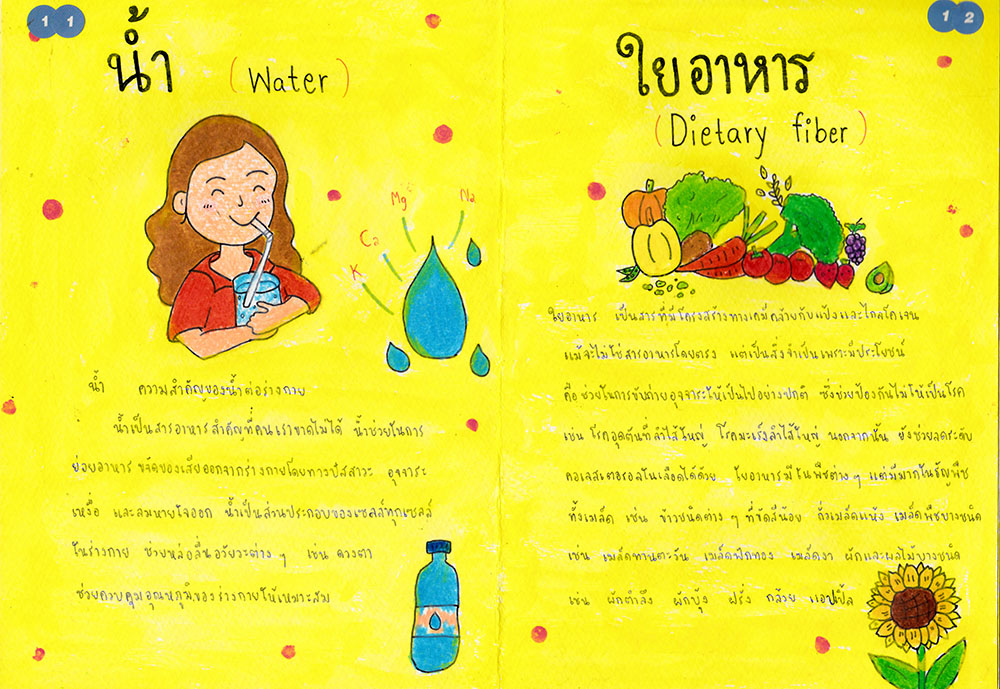 11
น้ำ (Water)
Mg
Na
Ca
K
น้ำ ความสำคัญของน้ำต่อร่างกาย
น้ำเป็นสารอาหารสำคัญที่คนเราขาดไม่ได้ น้ำช่วยในการ
ย่อยอาหาร ขจัดของเสียออกจากร่างกายโดยทางปัสสาวะ อุจจาระ
เหงื่อ และลมหายใจออก น้ำเป็นส่วนประกอบของเซลล์ทุกเซลล์
ในร่างกาย ช่วยหล่อลื่นอวัยวะต่างๆ เช่น ดวงตา
ช่วยควบคุมอุณหภูมิของร่างกายให้เหมาะสม
12
ใยอาหาร
(Dietary fiber)
ใยอาหาร เป็นสารที่มีโครงสร้างทางเคมีคล้ายกับแป้งและไกลโคเจน
แม้จะไม่ใช่สารอาหารโดยตรง แต่เป็นสิ่งจำเป็นเพราะมีประโยชน์
คือ ช่วยในการขับถ่ายอุจจาระให้เป็นไปอย่างปกติ ซึ่งช่วยป้องกันไม่ให้เป็นโรค
เช่น โรคอุดตันที่ลำไส้ใหญ่ โรคมะเร็งลำไส้ใหญ่ นอกจากนั้น ยังช่วยลดระดับ
คอเลสเตอรอลในเลือดได้ด้วย ใยอาหารมีในพืชต่างๆ แต่มีมากในธัญพืช
ทั้งเมล็ด เช่น ข้าวชนิดต่าง ๆ ที่ขัดสีน้อย ถั่วเมล็ดแห้ง เมล็ดพืชบางชนิด
เช่น เมล็ดทานตะวัน เมล็ดฟักทอง เมล็ดงา ผักและผลไม้บางชนิด
เช่น ผักตำลึง ผักบุ้ง ฝรั่ง กล้วย แอปเปิ้ล